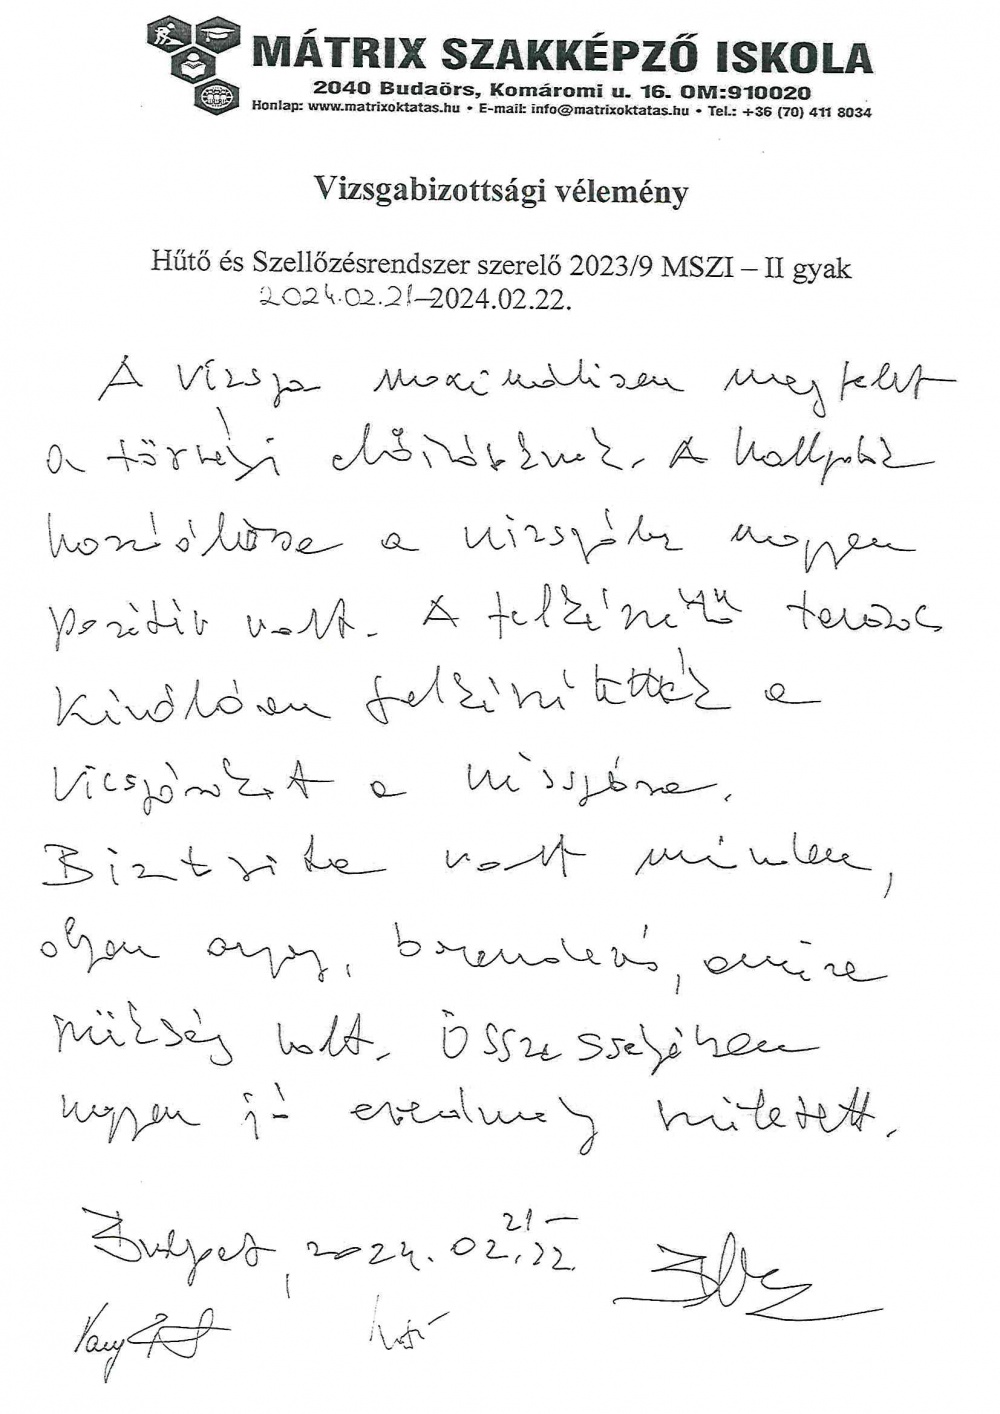 MÁTRIX SZAKKÉPZŐ ISKOLA
2040 Budaörs, Komáromi u. 16. OM:910020
Honlap: www.matrixoktatas.hu • E-mail: info@matrixoktatas.hu • Tel.: +36 (70) 411 8034
Vizsgabizottsági vélemény
Hűtő és Szellőzésrendszer szerelő 2023/9 MSZI – II gyak
2024.02.21–2024.02.22.
A vizsga maximálisan megfelelt
a törvényi előírásoknak. A hallgatók
hozzáállása a vizsgához nagyon
pozitív volt. A felkészítő tanárok
kiválóan felkészítették a
vizsgázókat a vizsgára.
Biztosítva volt minden,
olyan anyag, berendezés, amire
szükség volt. Összességében
nagyon jó eredmény született.
Budapest, 2024.02.21–22.